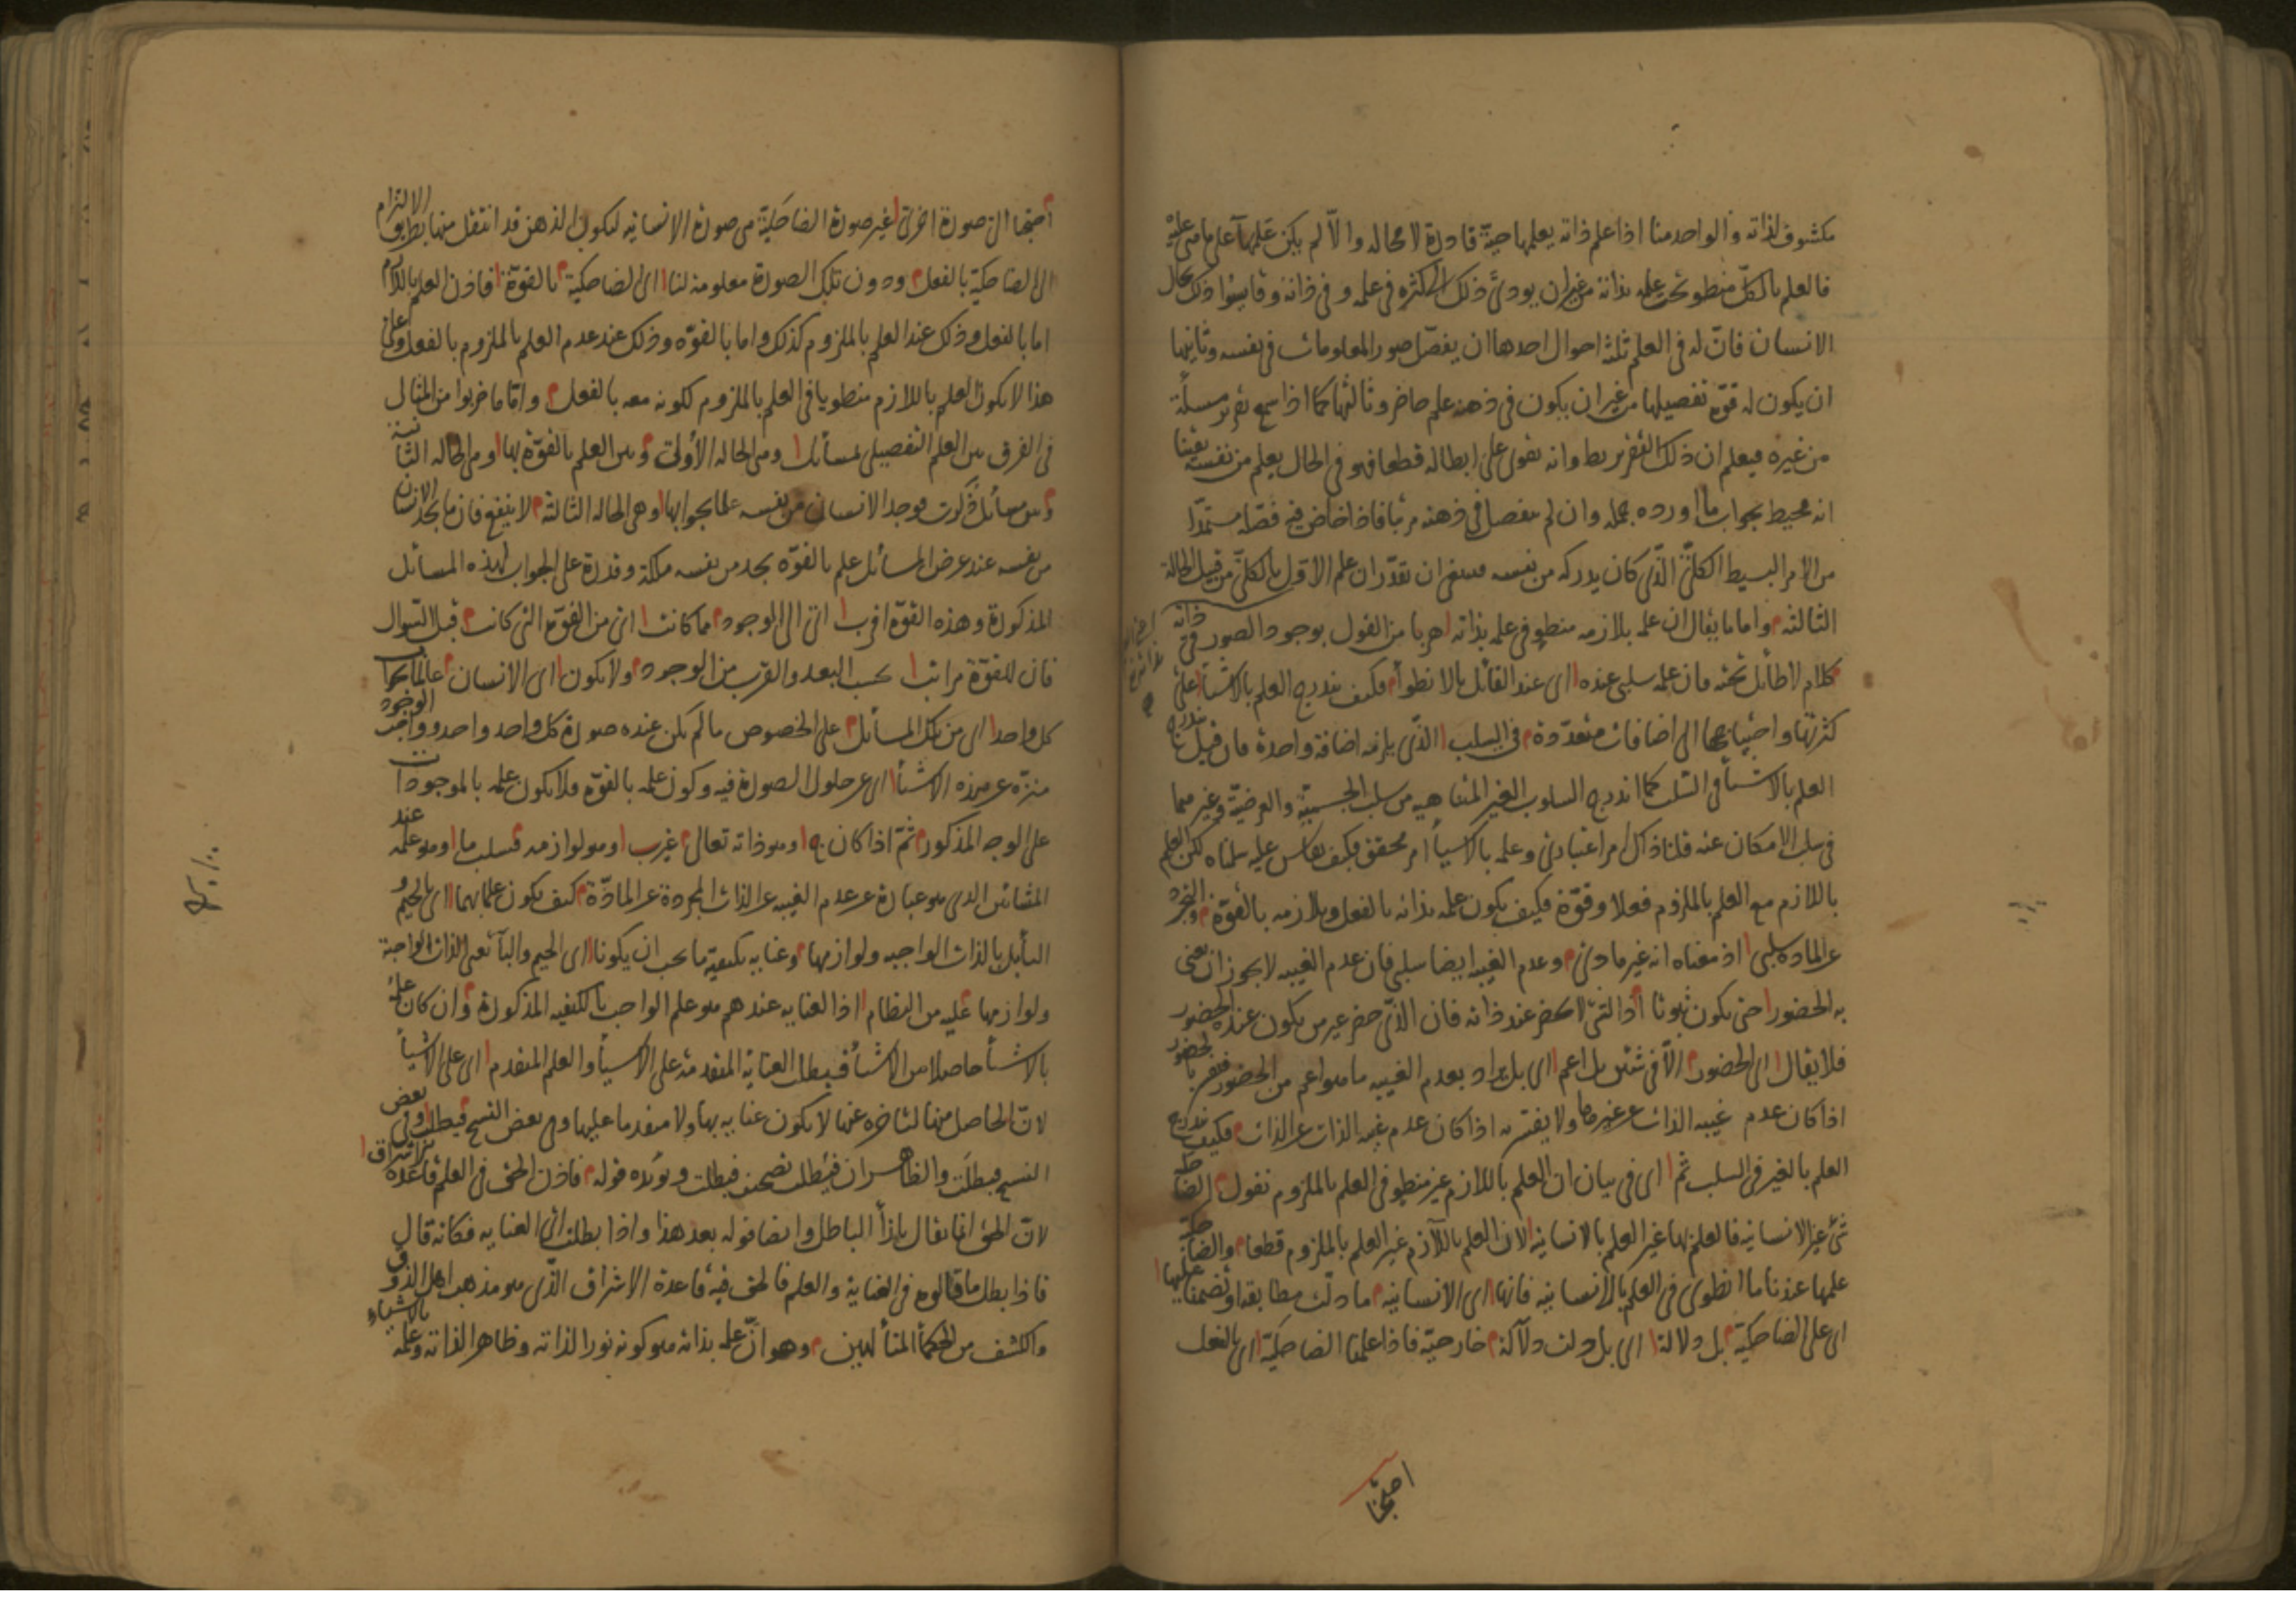 مكشوف لذاته والواحد منا اذا علم ذاته يعلمها حيّة قادرة لا محاله والّا لم يكن علمها على ما هى عليه
فالعلم بالكلّ منطو تحت علمه بذاته من غير ان يودىّ ذلك الى كثرة فى علمه وفى ذاته وقايسوا ذلك بحال
الانسان فانّ له فى العلم ثلثة احوال احدها ان يفصّل صور المعلومات فى نفسه وثانيها
ان يكون له قوّة تفصيلها من غير ان يكون فى ذهنه علم حاضر وثالثها كما اذا سمع تقرير مسلة
من غيره فيعلم ان ذلك التقرير بط وانه يقوى على ابطاله قطعا فهو فى الحال يعلم من نفسه يقينا
انه محيط بجواب ما اورده جملة وان لم يتفصل فى ذهنه مرتبا فاذا خاض فيه فصّله مستمدّا
من الامر البسيط الكلّىّ الذّى كان يدركه من نفسه فينبغى ان تقدّر ان علم الاوّل بالكلّ من قبيل الحالة
الثالثه واما ما يقال ان علمه بلازمه منطو فى علمه بذاته هربا من القول بوجود الصور فى ذاته
كلام لا طائل تحته فان علمه سلبى عنده اى عند القائل بالانطوأ فكيف يندرج العلم بالاشيأ على
كثرتها واحتياجها الى اضافات متعدّدة فى السلب الذّى يلزمه اضافة واحدة فان قيل يندرج
العلم بالاشيأ فى السّلب كما اندرج السلوب الغير المتناهيه من سلب الجسميّة والعرضيّة وغيرهما
فى سلب الامكان عنه قلنا ذاك امر اعتبادى وعلمه بالاشيأ امر محقق فكيف يقاس عليه سلمناه لكن العلم
باللازم مع العلم بالملزوم فعلا وقوّة فكيف يكون علمه بذاته بالفعل وبلازمه بالقوّة والتجرد
عن المادة سلبى اذ معناه انه غير مادى وعدم الغيبه ايضا سلبى فان عدم الغيبه لا يجوز ان يعنى
به الحضور حتى يكون ثبوتا اذ الشئ لا يحضر عند ذاته فان الذّى حضر غير من يكون عنده الحضور
فلا يقال اى الحضور الّا فى شيئين بل اعم اى بل يراد بعدم الغيبه ما هو اعم من الحضور
اذا كان عدم غيبه الذات عن غيرها ولا يقترن به اذا كان عدم غيبه الذات عن الذات فكيف يندرج
العلم بالغير فى السلب ثم اى فى بيان ان العلم باللازم غير منطو فى العلم بالملزوم نقول الضاحكية
شئ غير الانسانيه فالعلم بها غير العلم بالانسانية لان العلم باللّازم غير العلم بالملزوم قطعا والضاحكية
علمها عندنا ما انطوى فى العلم بالانسانيه فانها اى الانسانيه ما دلّت مطابقة او تضمنا عليها
اى على الضاحكية بل دلالة اى بل دلت دلالة خارجيّة فاذا علمنا الضاحكيّة اى بالفعل
احتجنا
احتجنا الى صورة اخرى غير صورة الضاحكيّة هى صورة الانسانيه ليكون الذهن قد انتقل منها بطريق الالتزام
الى الضاحكيّة بالفعل ودون تلك الصورة معلومة لنا اى الضاحكية بالقوّة فاذن العلم باللازم
اما بالفعل وذلك عند العلم بالملزوم كذلك واما بالقوّه وذلك عند عدم العلم بالملزوم بالفعل وعلى
هذا لا يكون العلم باللازم منطويا فى العلم بالملزوم لكونه معه بالفعل وامّا ما ضربوا من المثال
فى الفرق بين العلم التفصيلى بمسائل وهى الحاله الأولى وبين العلم بالقوّة بها وهى الحاله الثانية
وبين مسائل ذكرت فوجد الانسان من نفسه علما بجوابها وهى الحالة الثالثة لا ينفع فان ما يجد الانسان
من نفسه عند عرض المسائل علم بالقوّه يجد من نفسه ملكة وقدرة على الجواب لهذه المسائل
المذكورة وهذه القوّة اقرب اى الى الوجود مما كانت اى من القوّة التى كانت قبل السّوال
فان للقوّة مراتب بحسب البعد والقرب من الوجود ولا يكون اى الانسان عالما بجواب
كل واحد اى من تلك المسائل على الخصوص ما لم يكن عنده صورة كل واحد واحد وواجب الوجود
منزّه عن هذه الاشيأ اى عن حلول الصورة فيه وكون علمه بالقوّة فلا يكون علمه بالموجودات
على الوجه المذكور ثمّ اذا كان ج وهو ذاته تعالى غير ب وهو لوازمه فسلب ما وهو علمه عند
المشائين الذى هو عبارة عن عدم الغيبه عن الذات المجردة عن المادّة كيف يكون علما بهما اى بالجيم و
البأ بل بالذات الواجبه ولوازمها وعنايه بكيفية ما يجب ان يكونا اى الجيم والبآ يعنى الذات الواجبة
ولوازمها عليه من النظام اذ العنايه عندهم هو علم الواجب بالكيفيه المذكورة وان كان علمه
بالاشيأ حاصلا من الاشيأ فيبطل العناية المتقدمة على الاشيأ والعلم المتقدم اى على الاشيأ
لانّ الحاصل منها لتاخره عنها لا يكون عنايه بها ولا متقدما عليها وفى بعض النسخ فيطلب وفى بعض
النسخ فبطلت والظاهر ان فيطلب تصحيف فبطلت ويؤيّده قوله فاذن الحق فى العلم قاعدة الاشراق
لانّ الحق انما يقال بازأ الباطل وايضا قوله بعد هذا واذا بطلت اى العنايه فكانه قال
فاذا بطل ما قالوه فى العناية والعلم فالحق فيه قاعدة الاشراق الذّى هو مذهب اهل الذوق
والكشف من الحكمأ المتألهين وهو انّ علمه بذاته هو كونه نورا لذاته وظاهرا لذاته وعلمه بالاشياء